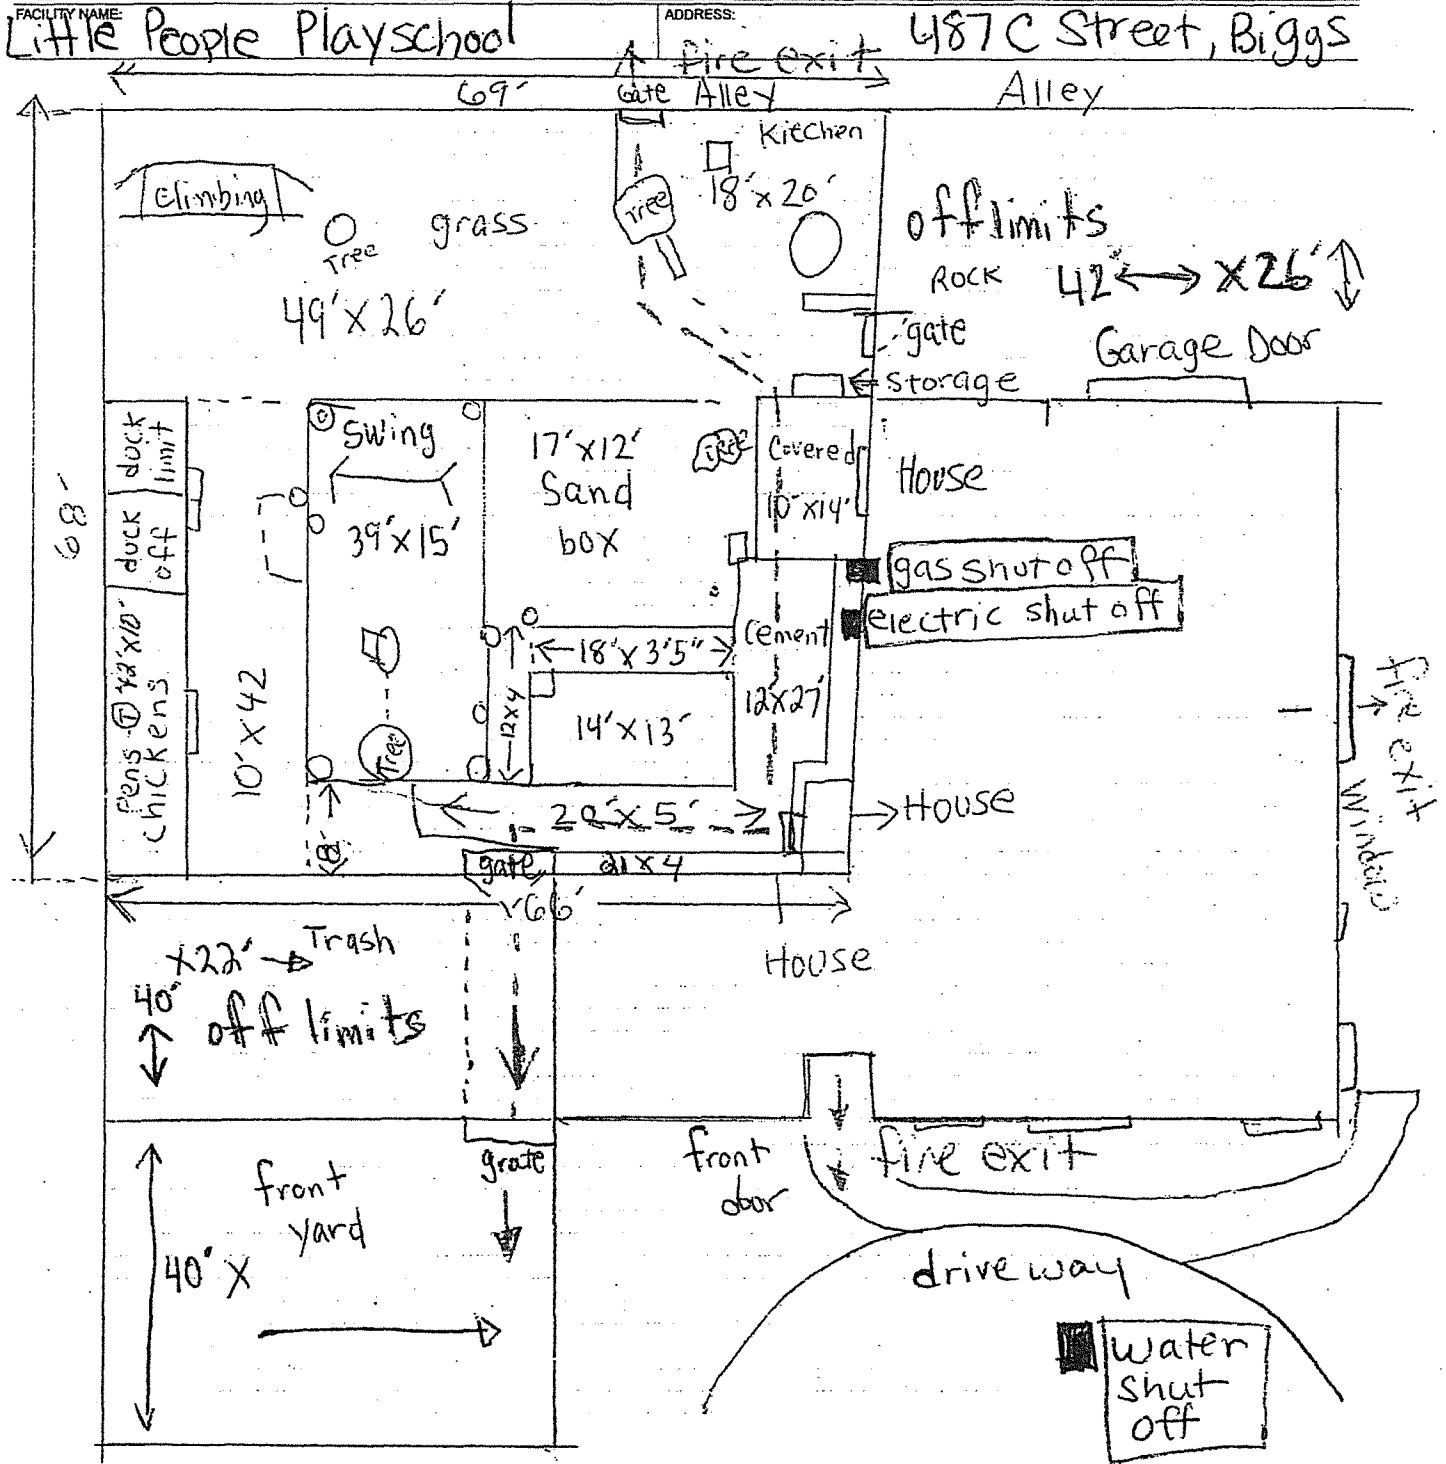 FACILITY NAME:
Little People Playschool
ADDRESS:
487 C Street, Biggs
fire exit
69'
Gate
Alley
Alley
Kitchen
18'x20'
Climbing
Tree
grass
49'x26'
Tree
off limits
ROCK 42' x 26'
gate
Garage Door
storage
duck limit
duck off
Pens
chickens
10'x42
68'
swing
39'x15'
17'x12'
Sand
box
Tree
Covered
10'x14'
House
gas shut off
electric shut off
Cement
12'x27'
18'x3'5"
12x4
14'x13'
Tree
8'
x5'
House
gate
21x4
66'
fire exit
window
x22' Trash
40"
off limits
House
front
yard
40' X
grate
front
door
fire exit
driveway
water
shut
off